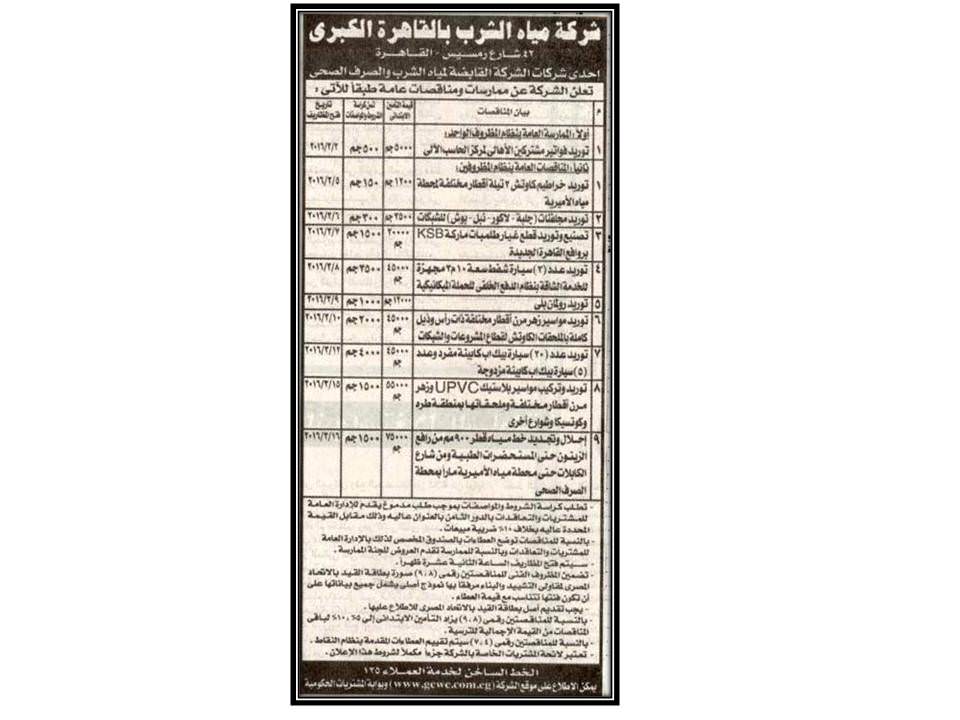 شركة مياه الشرب بالقاهرة الكبرى
٤٢ شارع رمسيس - القاهرة
إحدى شركات الشركة القابضة لمياه الشرب والصرف الصحى
تعلن الشركة عن ممارسات ومناقصات عامة طبقاً للآتى :
م بيان المناقصات قيمة التأمين الابتدائى ثمن كراسة الشروط والمواصفات تاريخ فتح المظاريف
أولاً : الممارسة العامة بنظام المظروف الواحد :
١ توريد فواتير مشتركين الأهالى لمركز الحاسب الآلى ٥٠٠٠ جم ٥٠٠ جم ٢٠١٦/٢/٢
ثانياً : المناقصات العامة بنظام المظروفين :
١ توريد خراطيم كاوتش ٢ تيلة أقطار مختلفة لمحطة ١٢٠٠ جم ١٥٠ جم ٢٠١٦/٢/٥
مياه الأميرية
٢ توريد مجلفنات (جلبة - لاكور - نبل - بوش) للشبكات ٢٥٠٠ جم ٣٠٠ جم ٢٠١٦/٢/٦
٣ تصنيع وتوريد قطع غيار طلمبات ماركة KSB ٢٠٠٠٠ جم ١٥٠٠ جم ٢٠١٦/٢/٧
بروافع القاهرة الجديدة
٤ توريد عدد (٢) سيارة شفط سعة ١٠م٣ مجهزة ٤٥٠٠٠ جم ٢٥٠٠ جم ٢٠١٦/٢/٨
للخدمة الشاقة بنظام الدفع الخلفى للحملة الميكانيكية
٥ توريد رولمان بلى ١٢٠٠٠ جم ١٠٠٠ جم ٢٠١٦/٢/٩
٦ توريد مواسير زهر مرن أقطار مختلفة ذات رأس وذيل ٤٥٠٠٠ جم ٢٠٠٠ جم ٢٠١٦/٢/١٠
كاملة بالملحقات الكاوتش لقطاع المشروعات والشبكات
٧ توريد عدد (٢٠) سيارة بيك اب كابينة مفرد وعدد ٤٥٠٠٠ جم ٤٠٠٠ جم ٢٠١٦/٢/١٢
(٥) سيارة بيك اب كابينة مزدوجة
٨ توريد وتركيب مواسير بلاستيك UPVC وزهر ٥٥٠٠٠ جم ١٥٠٠ جم ٢٠١٦/٢/١٥
مرن أقطار مختلفة وملحقاتها بمنطقة طره
وكوتسيكا وشوارع أخرى
٩ إحلال وتجديد خط مياه قطر ٩٠٠ مم من رافع ٧٥٠٠٠ جم ١٥٠٠ جم ٢٠١٦/٢/١٦
الزيتون حتى المستحضرات الطبية ومن شارع
الكابلات حتى محطة مياه الأميرية ماراً بمحطة
الصرف الصحى
- تطلب كراسة الشروط والمواصفات بموجب طلب مدموغ يقدم للإدارة العامة
للمشتريات والتعاقدات بالدور الثامن بالعنوان عاليه وذلك مقابل القيمة
المحددة عاليه بخلاف ١٠٪ ضريبة مبيعات .
- بالنسبة للمناقصات توضع العطاءات بالصندوق المخصص لذلك بالإدارة العامة
للمشتريات والتعاقدات وبالنسبة للممارسة تقدم العروض للجنة الممارسة .
- سيتم فتح المظاريف الساعة الثانية عشرة ظهراً .
- تضمين المظروف الفنى للمناقصتين رقمى (٩،٨) صورة بطاقة القيد بالاتحاد
المصرى لمقاولى التشييد والبناء مرفقا بها نموذج أصلى يشمل جميع بياناتها على
أن تكون فئتها تتناسب مع قيمة العطاء .
- يجب تقديم أصل بطاقة القيد بالاتحاد المصرى للاطلاع عليها .
- بالنسبة للمناقصتين رقمى (٩،٨) يزاد التأمين الابتدائى إلى ٥٪، ١٠٪ لباقى
المناقصات من القيمة الإجمالية للترسية .
- بالنسبة للمناقصتين رقمى (٧،٤) سيتم تقييم العطاءات المقدمة بنظام النقاط .
- تعتبر لائحة المشتريات الخاصة بالشركة جزءاً مكملاً لشروط هذا الإعلان .
الخط الساخن لخدمة العملاء ١٢٥
يمكن الاطلاع على موقع الشركة (www.gcwc.com.eg) وبوابة المشتريات الحكومية